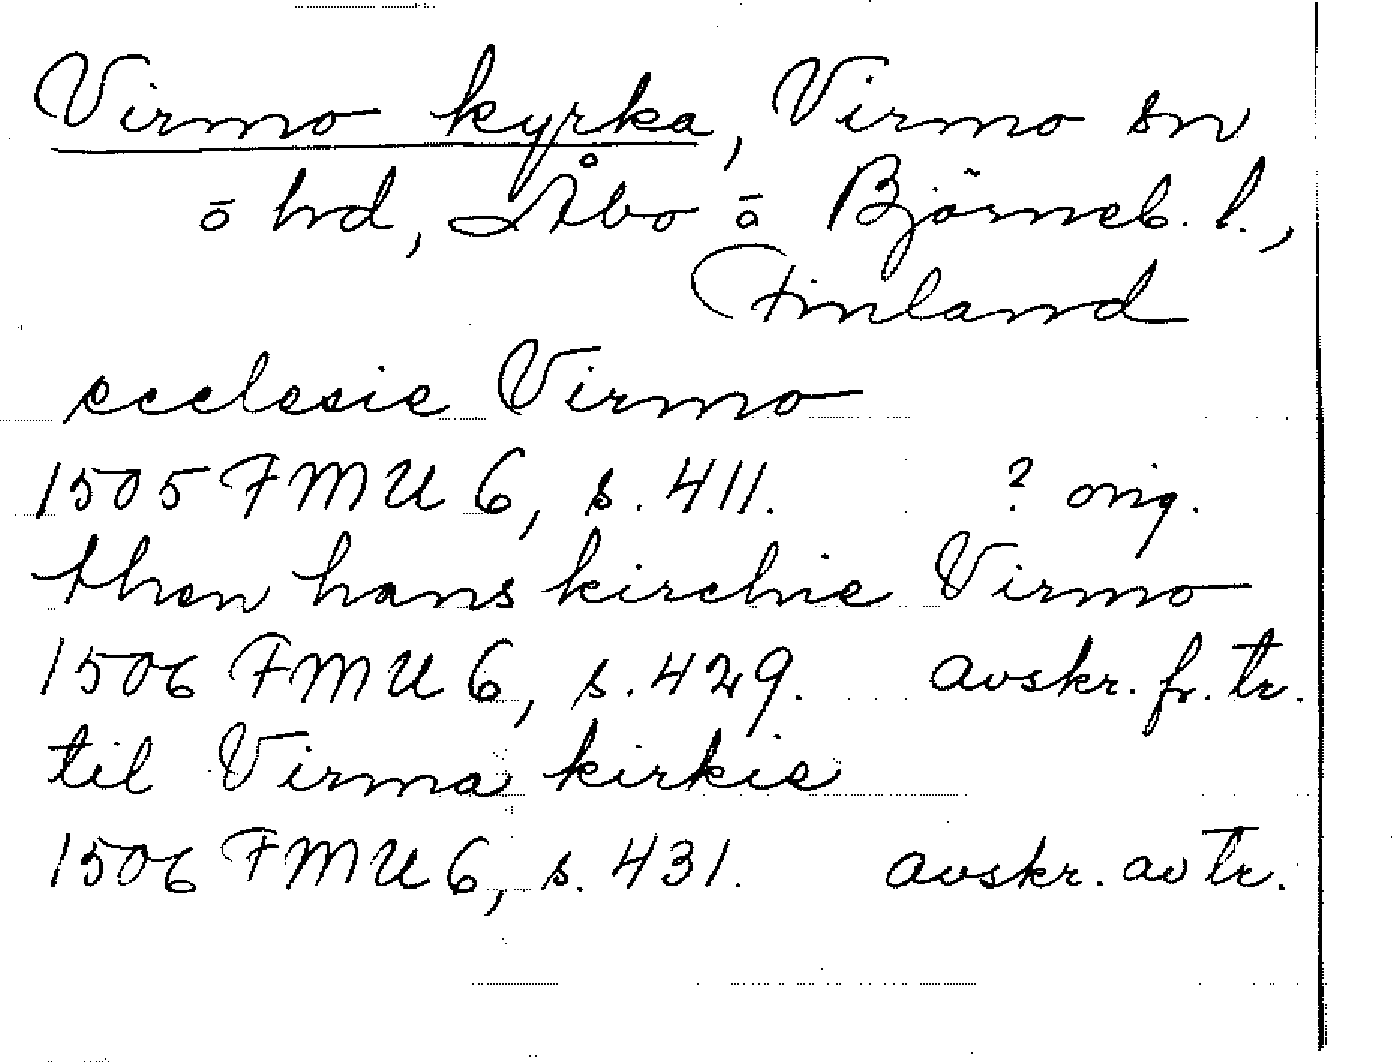 Virmo kyrka, Virmo sn
o hd, Åbo o Björneb. l.,
Finland
ecclesie Virmo
1505 FMU 6, s. 411. ? orig.
then hans kirchie Virmo
1506 FMU 6, s. 429. avskr. fr. tr.
til Virma kirkie
1506 FMU 6, s. 431. avskr. av tr.